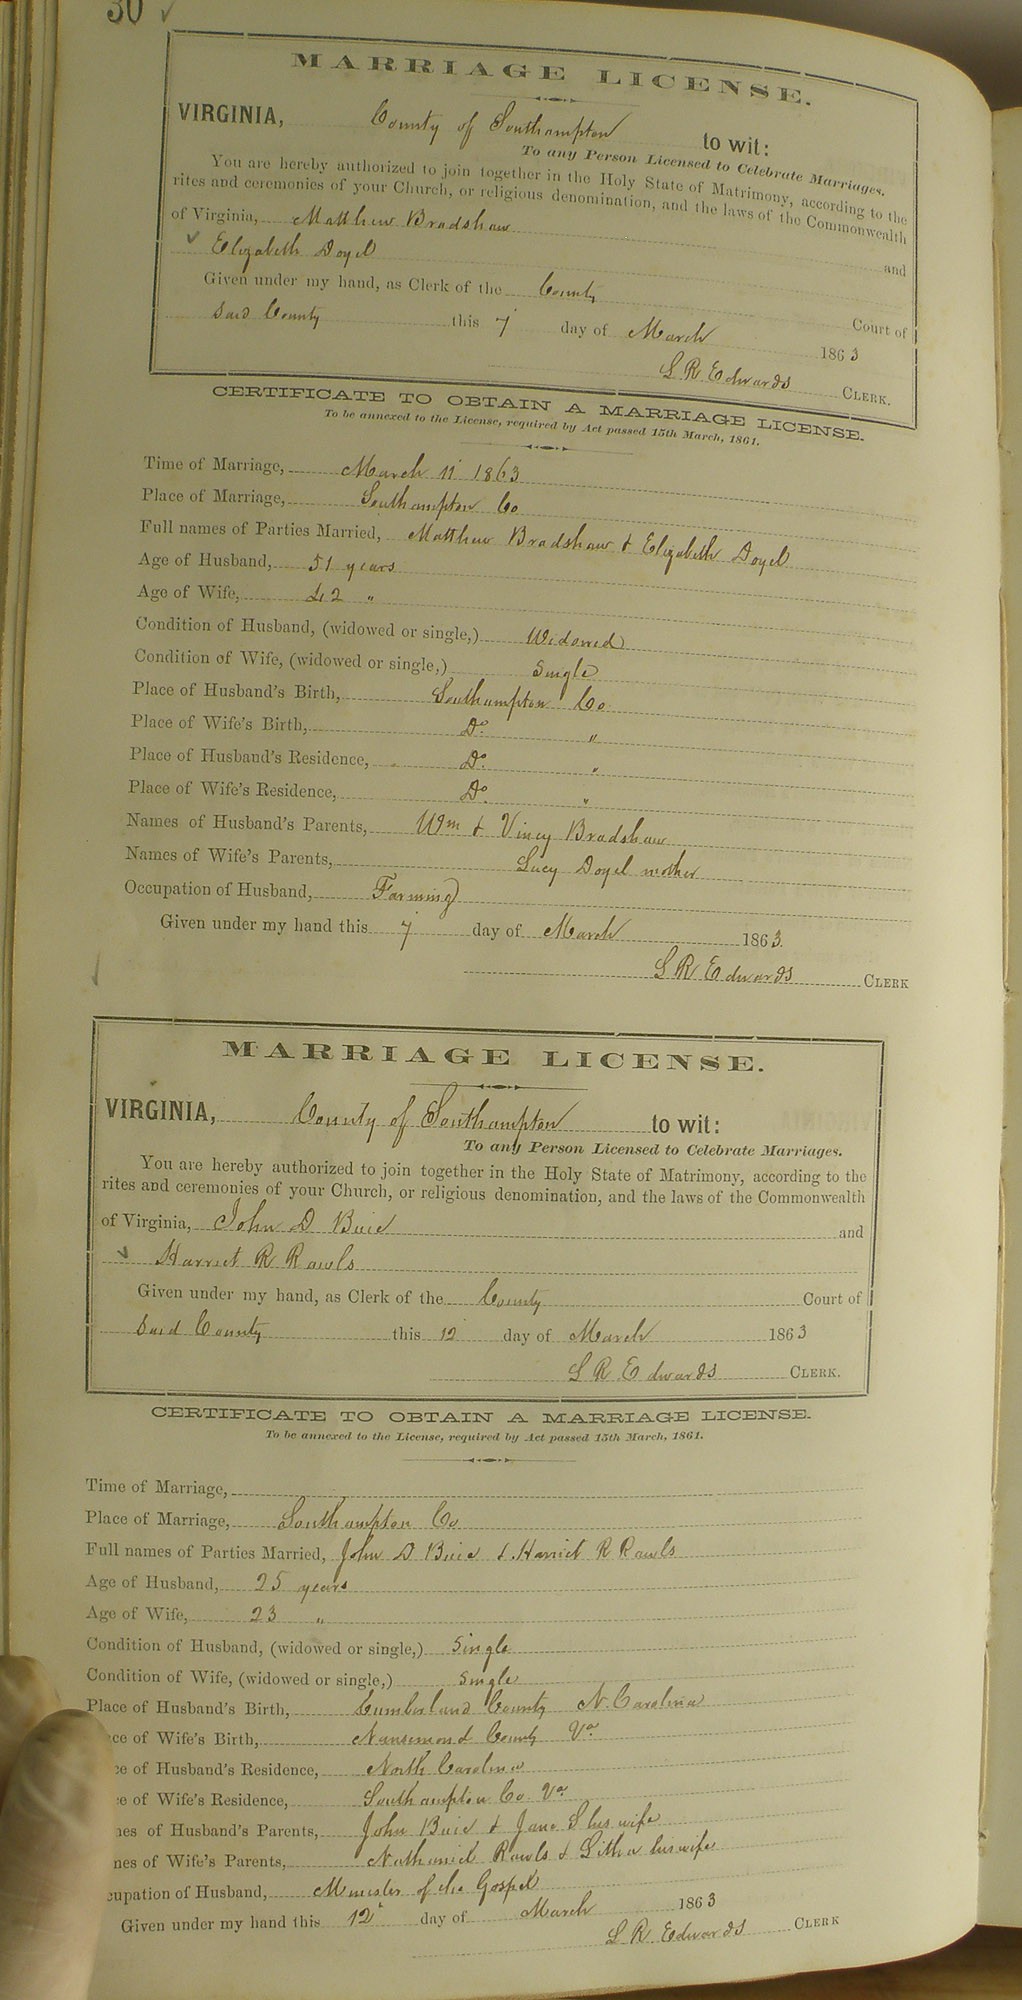 30 ✓
MARRIAGE LICENSE.
VIRGINIA, County of Southampton to wit:
To any Person Licensed to Celebrate Marriages.
You are hereby authorized to join together in the Holy State of Matrimony, according to the
rites and ceremonies of your Church, or religious denomination, and the laws of the Commonwealth
of Virginia, Matthew Bradshaw and
✓ Elizabeth Doyel
Given under my hand, as Clerk of the County Court of
Said County this 7 day of March 1863
L R Edwards CLERK.
CERTIFICATE TO OBTAIN A MARRIAGE LICENSE.
To be annexed to the License, required by Act passed 15th March, 1861.
Time of Marriage, March 11 1863
Place of Marriage, Southampton Co
Full names of Parties Married, Matthew Bradshaw & Elizabeth Doyel
Age of Husband, 51 years
Age of Wife, 42 "
Condition of Husband, (widowed or single,) Widowed
Condition of Wife, (widowed or single,) Single
Place of Husband's Birth, Southampton Co
Place of Wife's Birth, Do "
Place of Husband's Residence, Do "
Place of Wife's Residence, Do "
Names of Husband's Parents, Wm & Viney Bradshaw
Names of Wife's Parents, Lucy Doyel mother
Occupation of Husband, Farming
Given under my hand this 7 day of March 1863.
L R Edwards CLERK
MARRIAGE LICENSE.
VIRGINIA, County of Southampton to wit:
To any Person Licensed to Celebrate Marriages.
You are hereby authorized to join together in the Holy State of Matrimony, according to the
rites and ceremonies of your Church, or religious denomination, and the laws of the Commonwealth
of Virginia, John D Buie and
✓ Harriet R Rawls
Given under my hand, as Clerk of the County Court of
Said County this 12 day of March 1863
L R Edwards CLERK.
CERTIFICATE TO OBTAIN A MARRIAGE LICENSE.
To be annexed to the License, required by Act passed 15th March, 1861.
Time of Marriage,
Place of Marriage, Southampton Co
Full names of Parties Married, John D Buie & Harriet R Rawls
Age of Husband, 25 years
Age of Wife, 23 "
Condition of Husband, (widowed or single,) Single
Condition of Wife, (widowed or single,) Single
Place of Husband's Birth, Cumberland County N. Carolina
ce of Wife's Birth, Nansemond County Va
ce of Husband's Residence, North Carolina
ce of Wife's Residence, Southampton Co Va
nes of Husband's Parents, John Buie & Jane S his wife
nes of Wife's Parents, Nathaniel Rawls & Litha his wife
cupation of Husband, Minister of the Gospel
Given under my hand this 12 day of March 1863
L R Edwards CLERK